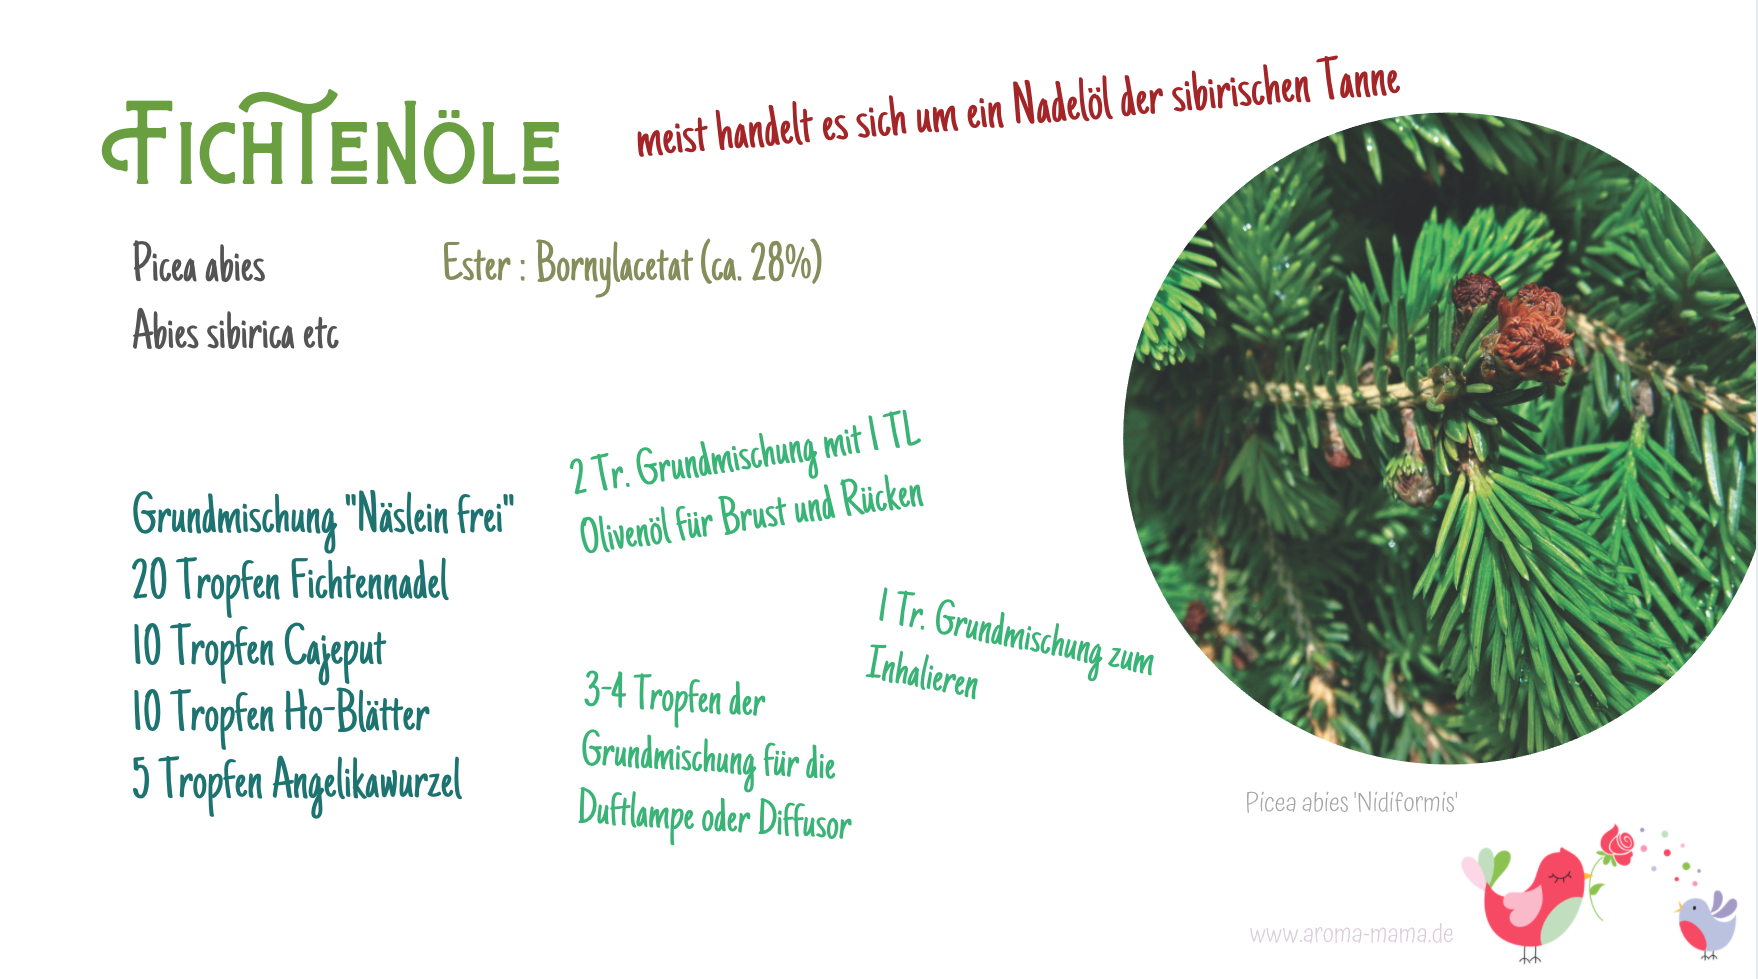 Fichtenöle
meist handelt es sich um ein Nadelöl der sibirischen Tanne
Picea abies
Ester : Bornylacetat (ca. 28%)
Abies sibirica etc
Grundmischung "Näslein frei"
20 Tropfen Fichtennadel
10 Tropfen Cajeput
10 Tropfen Ho-Blätter
5 Tropfen Angelikawurzel
2 Tr. Grundmischung mit 1 TL
Olivenöl für Brust und Rücken
1 Tr. Grundmischung zum
Inhalieren
3-4 Tropfen der
Grundmischung für die
Duftlampe oder Diffusor
Picea abies 'Nidiformis'
www.aroma-mama.de